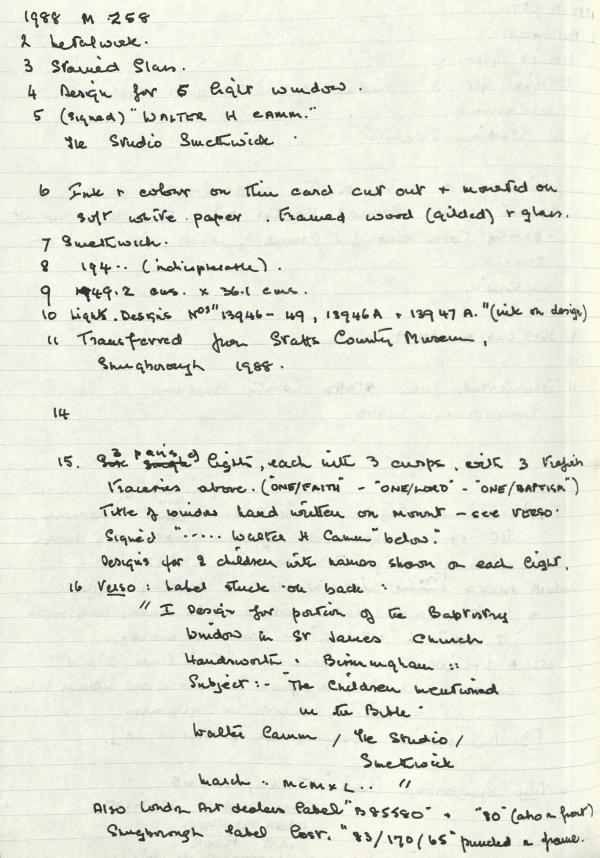 1988 M 258
2 Metalwork.
3 Stained Glass.
4 Design for 6 light window.
5 (signed) "WALTER H CAMM."
The Studio Smethwick.
6 Ink + colour on thin card cut out + mounted on
soft white paper. Framed wood (gilded) + glass.
7 Smethwick.
8 194.. (indecipherable).
9 49.2 cms. x 36.1 cms.
10 Light. Designs Nos "13946-49, 13946A + 13947A." (ink on design)
11 Transferred from Staffs County Museum,
Shugborough 1988.
14
15. 3 pairs of lights, each with 3 cusps, with 3 trefoil
traceries above. ("ONE/FAITH" - "ONE/LORD" - "ONE/BAPTISM")
Title of window hand written on mount - see VERSO.
Signed "..... Walter H Camm" below."
Designs for 8 children with names shown on each light.
16 Verso: Label stuck on back:
" I Design for portion of the Baptistry
Window in St James Church
Handsworth. Birmingham ::
Subject:- "The Children mentioned
in the Bible"
Walter Camm / The Studio /
Smethwick
March .. MCMXL .. "
Also London Art dealers label "B85580" + "80" (also on front)
Shugborough label Cost. "83/170/65" punched on frame.